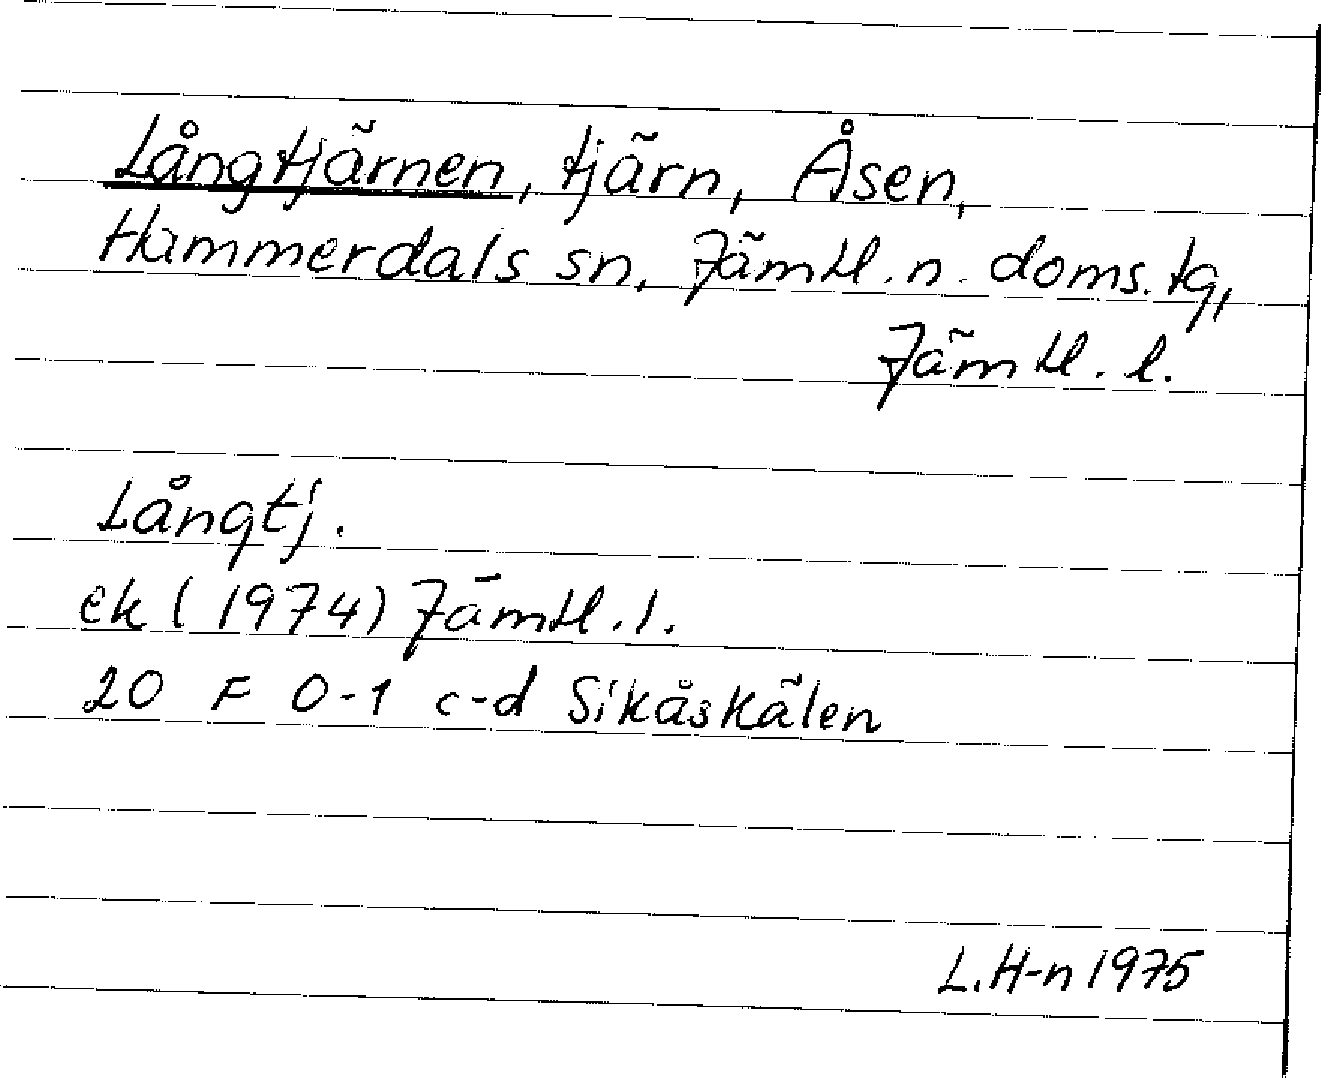 Långtjärnen, tjärn, Åsen,
Hammerdals sn, Jämtl. n. doms. tg,
Jämtl. l.
Långtj.
ek (1974) Jämtl. l.
20 F 0-1 c-d Sikåskälen
L.H-n 1975